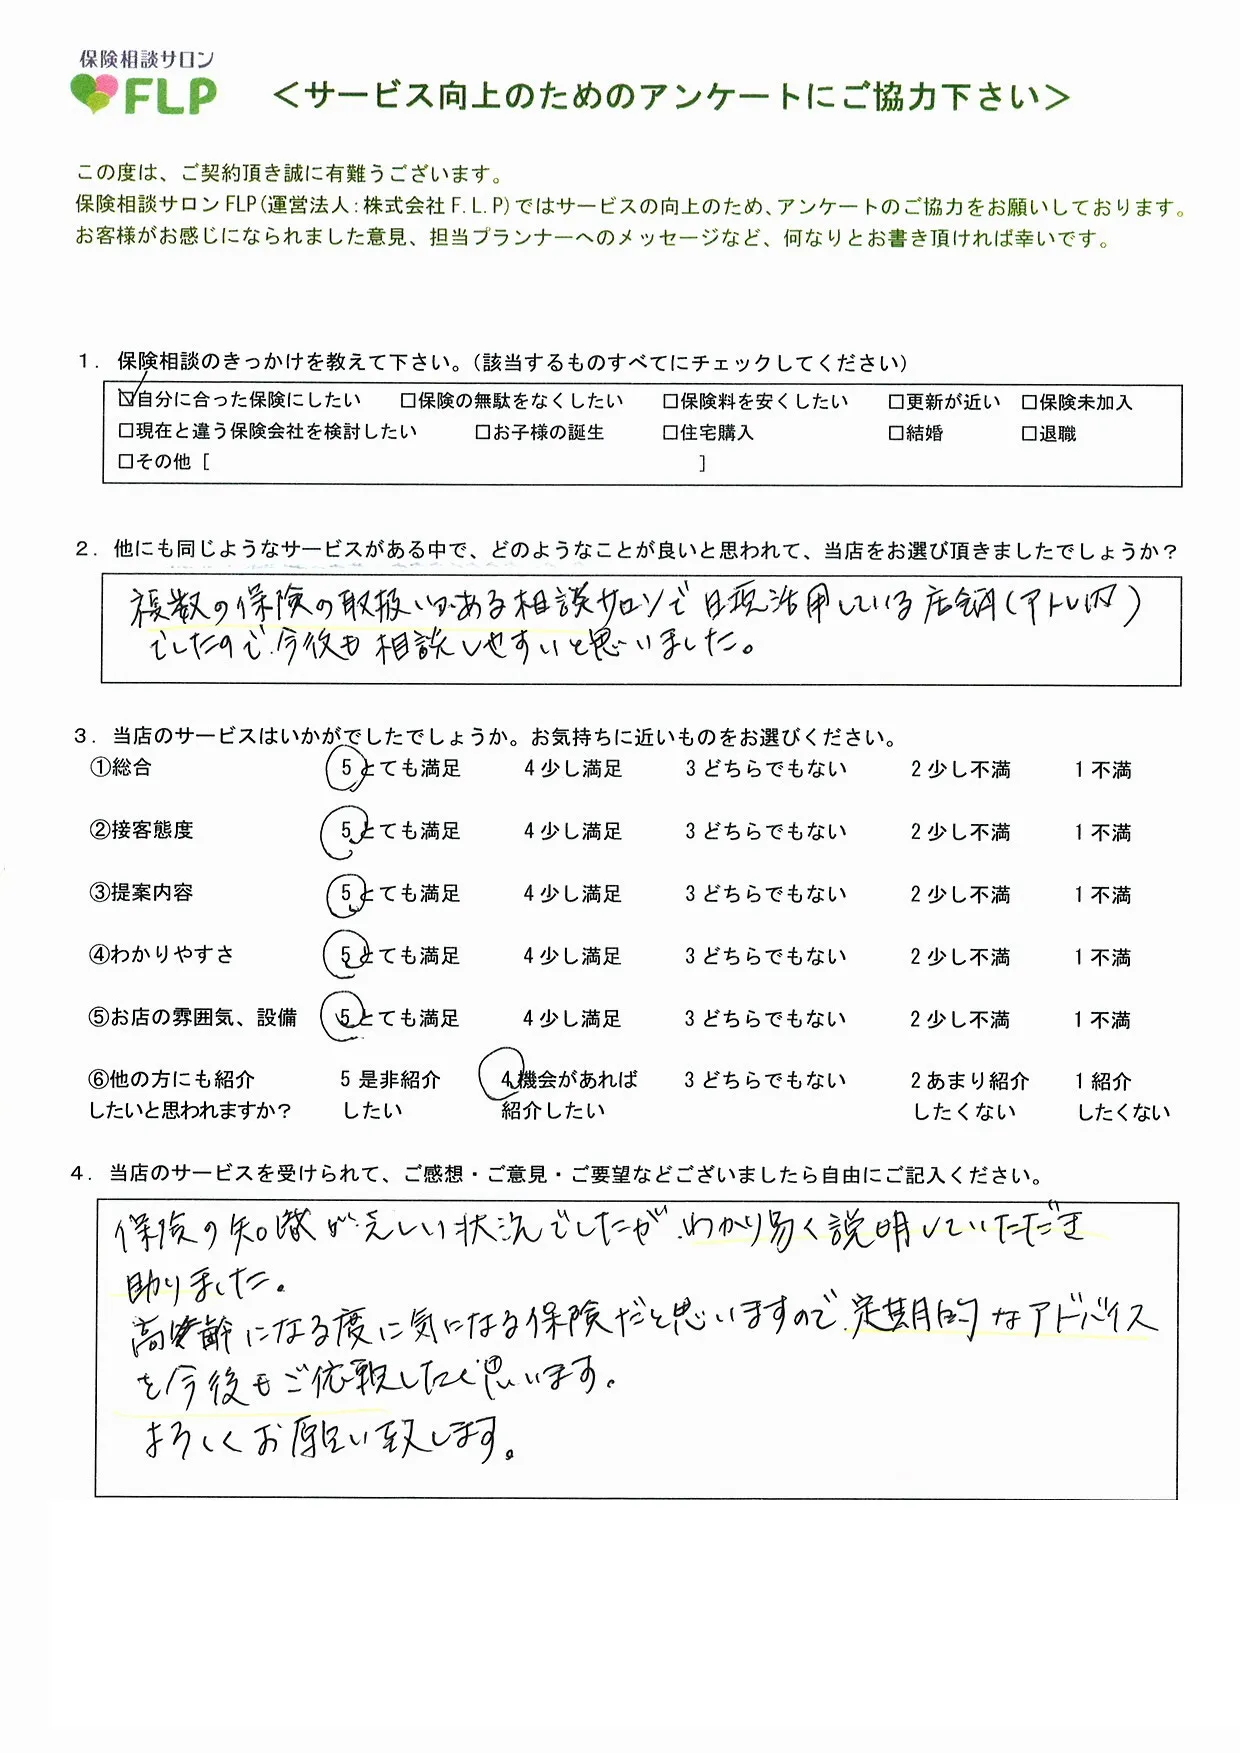 保険相談サロン
FLP
＜サービス向上のためのアンケートにご協力下さい＞
この度は、ご契約頂き誠に有難うございます。
保険相談サロンFLP(運営法人:株式会社F.L.P)ではサービスの向上のため、アンケートのご協力をお願いしております。
お客様がお感じになられました意見、担当プランナーへのメッセージなど、何なりとお書き頂ければ幸いです。
１．保険相談のきっかけを教えて下さい。(該当するものすべてにチェックしてください)
☑自分に合った保険にしたい □保険の無駄をなくしたい □保険料を安くしたい □更新が近い □保険未加入
□現在と違う保険会社を検討したい □お子様の誕生 □住宅購入 □結婚 □退職
□その他 [ ]
２．他にも同じようなサービスがある中で、どのようなことが良いと思われて、当店をお選び頂きましたでしょうか？
複数の保険の取扱いがある相談サロンで日頃活用している店舗(アトレ内)
でしたので、今後も相談しやすいと思いました。
３．当店のサービスはいかがでしたでしょうか。お気持ちに近いものをお選びください。
①総合 5 とても満足 4 少し満足 3 どちらでもない 2 少し不満 1 不満
②接客態度 5 とても満足 4 少し満足 3 どちらでもない 2 少し不満 1 不満
③提案内容 5 とても満足 4 少し満足 3 どちらでもない 2 少し不満 1 不満
④わかりやすさ 5 とても満足 4 少し満足 3 どちらでもない 2 少し不満 1 不満
⑤お店の雰囲気、設備 5 とても満足 4 少し満足 3 どちらでもない 2 少し不満 1 不満
⑥他の方にも紹介 5 是非紹介 4 機会があれば 3 どちらでもない 2 あまり紹介 1 紹介
したいと思われますか？ したい 紹介したい したくない したくない
４．当店のサービスを受けられて、ご感想・ご意見・ご要望などございましたら自由にご記入ください。
保険の知識が乏しい状況でしたが、わかり易く説明していただき
助かりました。
高齢になる度に気になる保険だと思いますので、定期的なアドバイス
を今後もご依頼したく思います。
よろしくお願い致します。